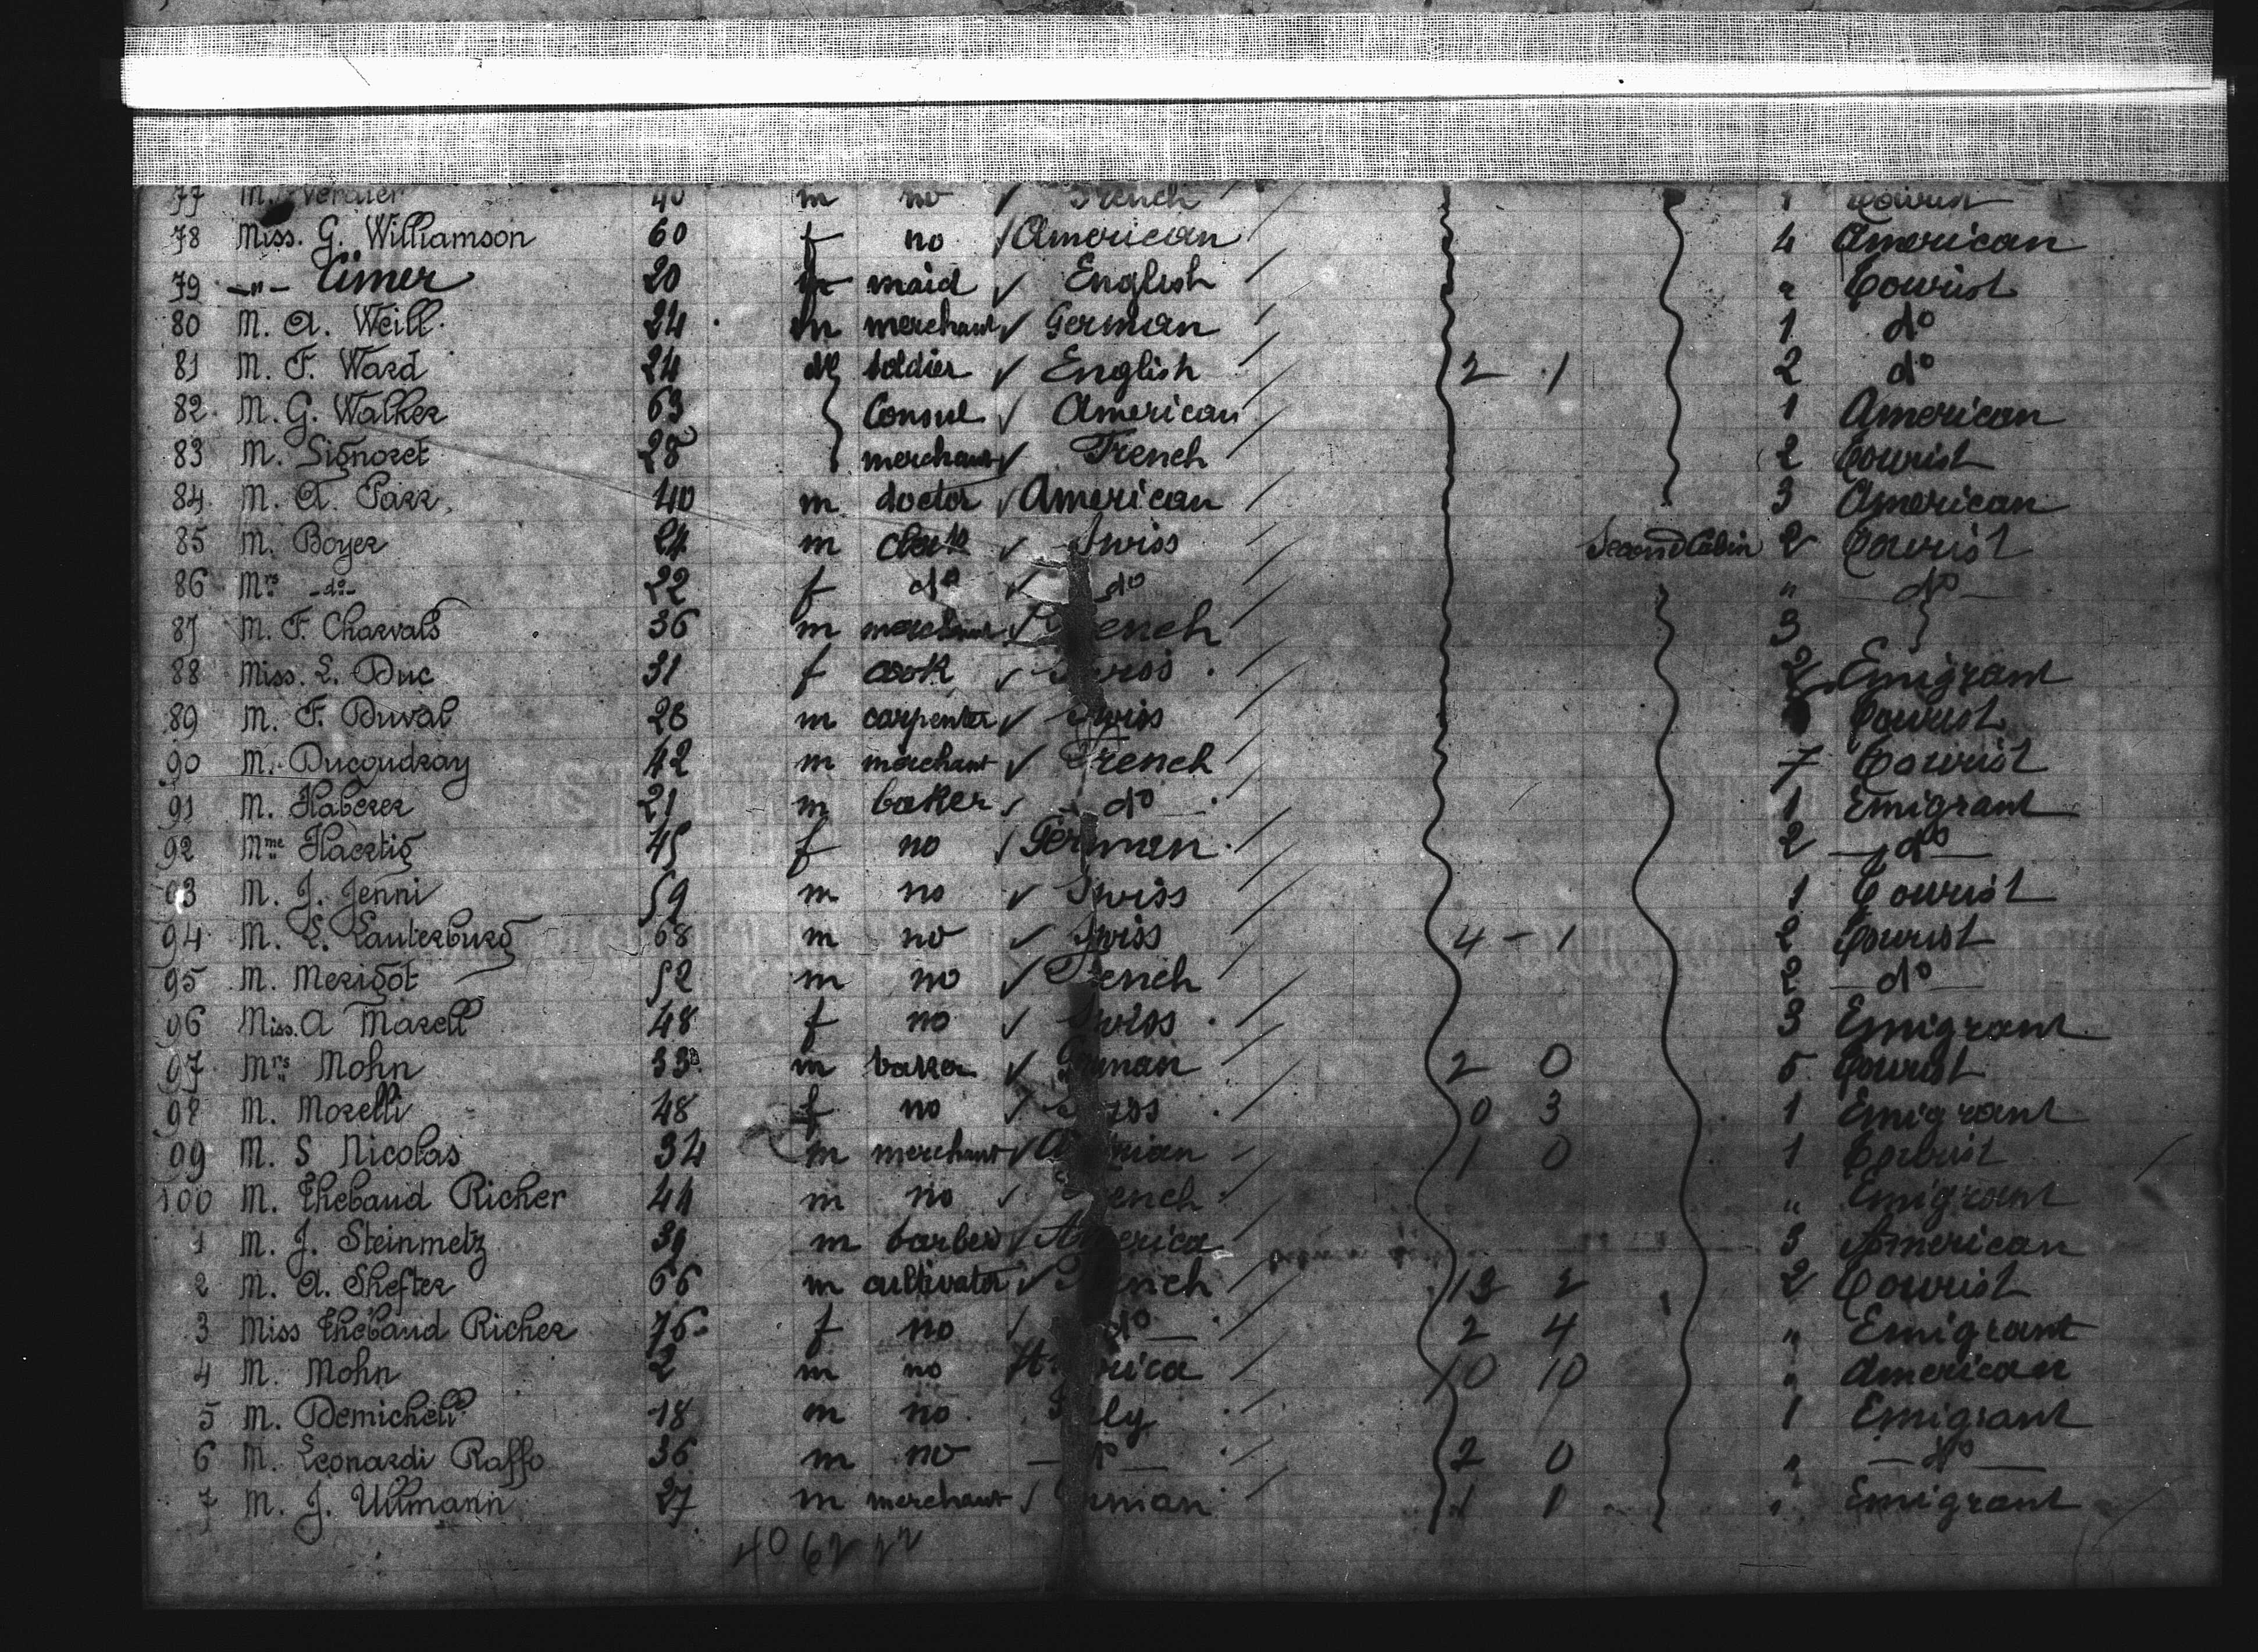 77 M. Verdier 40 m no ✓ French 1 Tourist
78 Miss. G. Williamson 60 f no / American 4 American
79 -"- Uimer 20 f maid ✓ English " Tourist
80 M. A. Weill 24 m merchant ✓ German 1 do
81 M. F. Ward 24 soldier ✓ English 2 1 2 do
82 M. G. Walker 63 Consul ✓ American 1 American
83 M. Signoret 28 merchant ✓ French 2 Tourist
84 M. A. Parr 40 m doctor ✓ American 3 American
85 M. Boyer 24 m clerk ✓ Swiss Second Cabin 2 Tourist
86 Mrs -do- 22 f do ✓ do " do
87 M. F. Charvals 36 m merchant ✓ ench 3
88 Miss. L. Duc 31 f cook ✓ Swiss 2 Emigrant
89 M. F. Duval 26 m carpenter ✓ Swiss Tourist
90 M. Ducoudray 42 m merchant ✓ French 7 Tourist
91 M. Haberer 21 m baker ✓ do 1 Emigrant
92 Mme Haertig 45 f no / German 2 do
93 M. J. Jenni 59 m no ✓ Swiss 1 Tourist
94 M. L. Lauterburg 68 m no ✓ Swiss 4 - 1 2 Tourist
95 M. Merigot 52 m no ✓ ench 2 do
96 Miss. A Marell 48 f no ✓ Swiss 3 Emigrant
97 Mrs Mohn 33 m baker ✓ German 2 0 5 Tourist
98 M. Morelli 48 f no ✓ iss 0 3 1 Emigrant
99 M. S Nicolas 34 m merchant ✓ A rian 1 0 1 Tourist
100 M. Thebaud Richer 44 m no ✓ ench " Emigrant
1 M. J. Steinmetz 39 m barber ✓ America 3 American
2 M. A. Shefter 66 m cultivator ✓ ench 13 2 2 Tourist
3 Miss Thebaud Richer 75 f no / do 2 4 " Emigrant
4 M. Mohn 2 m no America 10 10 " American
5 M. Demicheli 18 m no ly 1 Emigrant
6 M. Leonardi Raffo 36 m no do 2 0 " do
7 M. J. Ullmann 27 m merchant / rman 1 1 " Emigrant
40 62 22